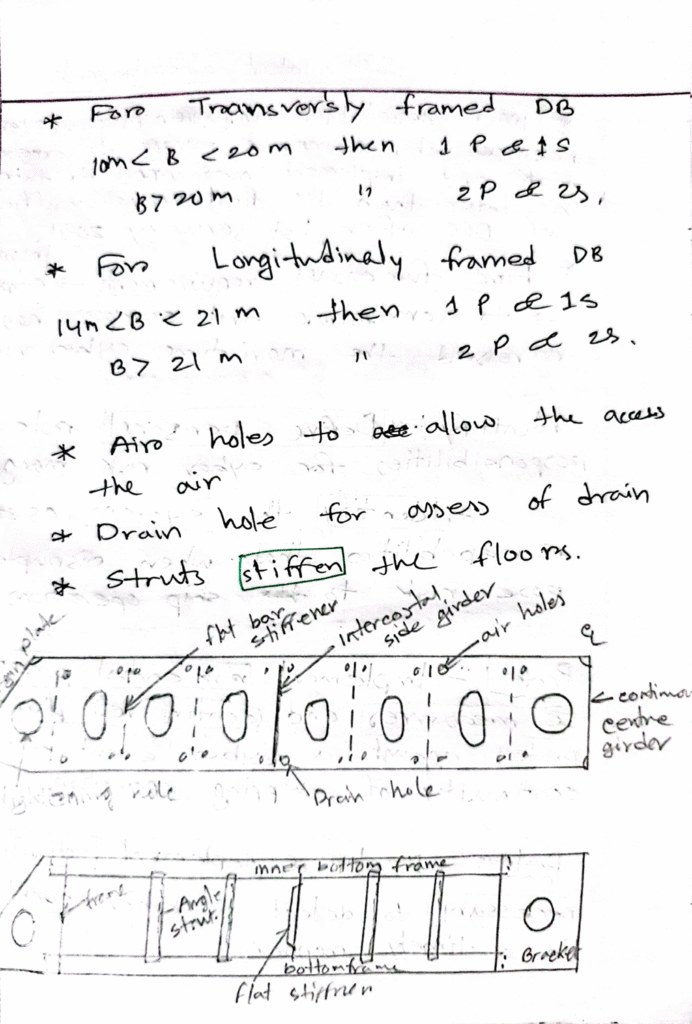 * Foro Transversly framed DB
10m < B < 20 m then 1 P & 1S
B > 20 m " 2 P & 2s,
* Foro Longitudinaly framed DB
14m < B < 21 m then 1 P & 1s
B > 21 m " 2 P & 2s.
* Airo holes to allow the access
the air
* Drain hole for assess of drain
* Struts stiffen the floors.
flat bar stiffener
intercostal side girder
air holes
℄
gin plate
continuo
centre
girder
lightening hole
Drain hole
inner bottom frame
frame
Angle
strut.
Bracket
bottom frame
flat stiffner